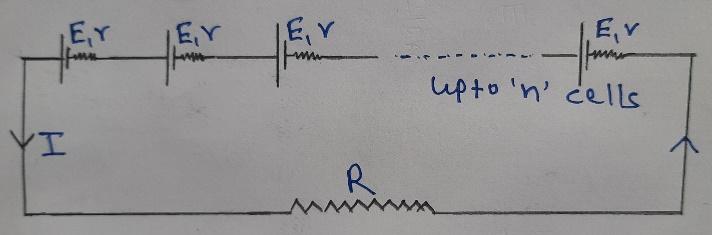 E, r E, r E, r E, r
upto 'n' cells
I
R